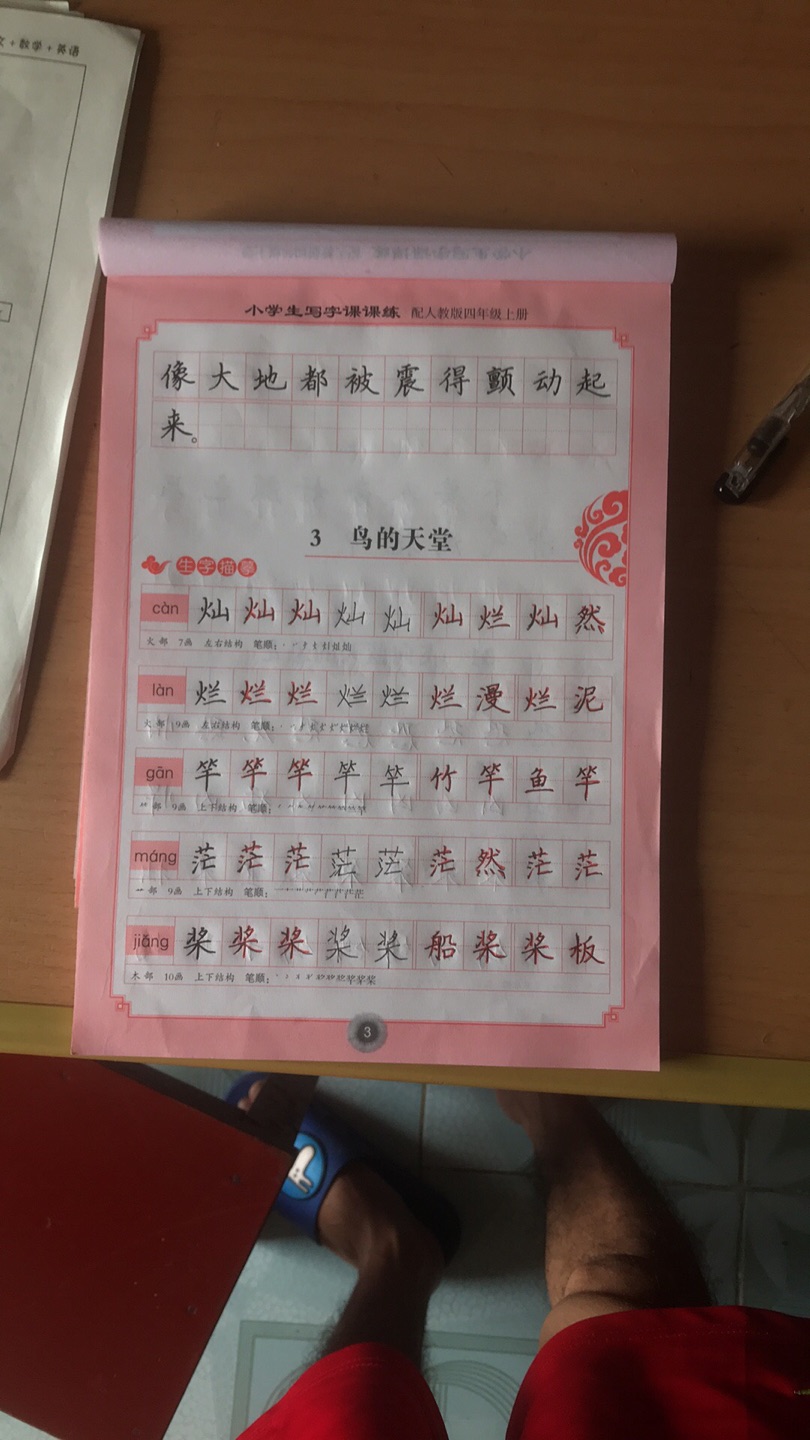 文+数学+英语
小学生写字课课练 配人教版四年级上册
像大地都被震得颤动起
来。
3 鸟的天堂
生字描摹
càn 灿 灿 灿 灿 灿 灿 烂 灿 然
火部 7画 左右结构 笔顺:
làn 烂 烂 烂 烂 烂 烂 漫 烂 泥
火部 9画 左右结构 笔顺:
gān 竿 竿 竿 竿 竿 竹 竿 鱼 竿
部 9画 上下结构 笔顺:
máng 茫 茫 茫 茫 茫 茫 然 茫 茫
艹部 9画 上下结构 笔顺:
jiǎng 桨 桨 桨 桨 桨 船 桨 桨 板
木部 10画 上下结构 笔顺:
3